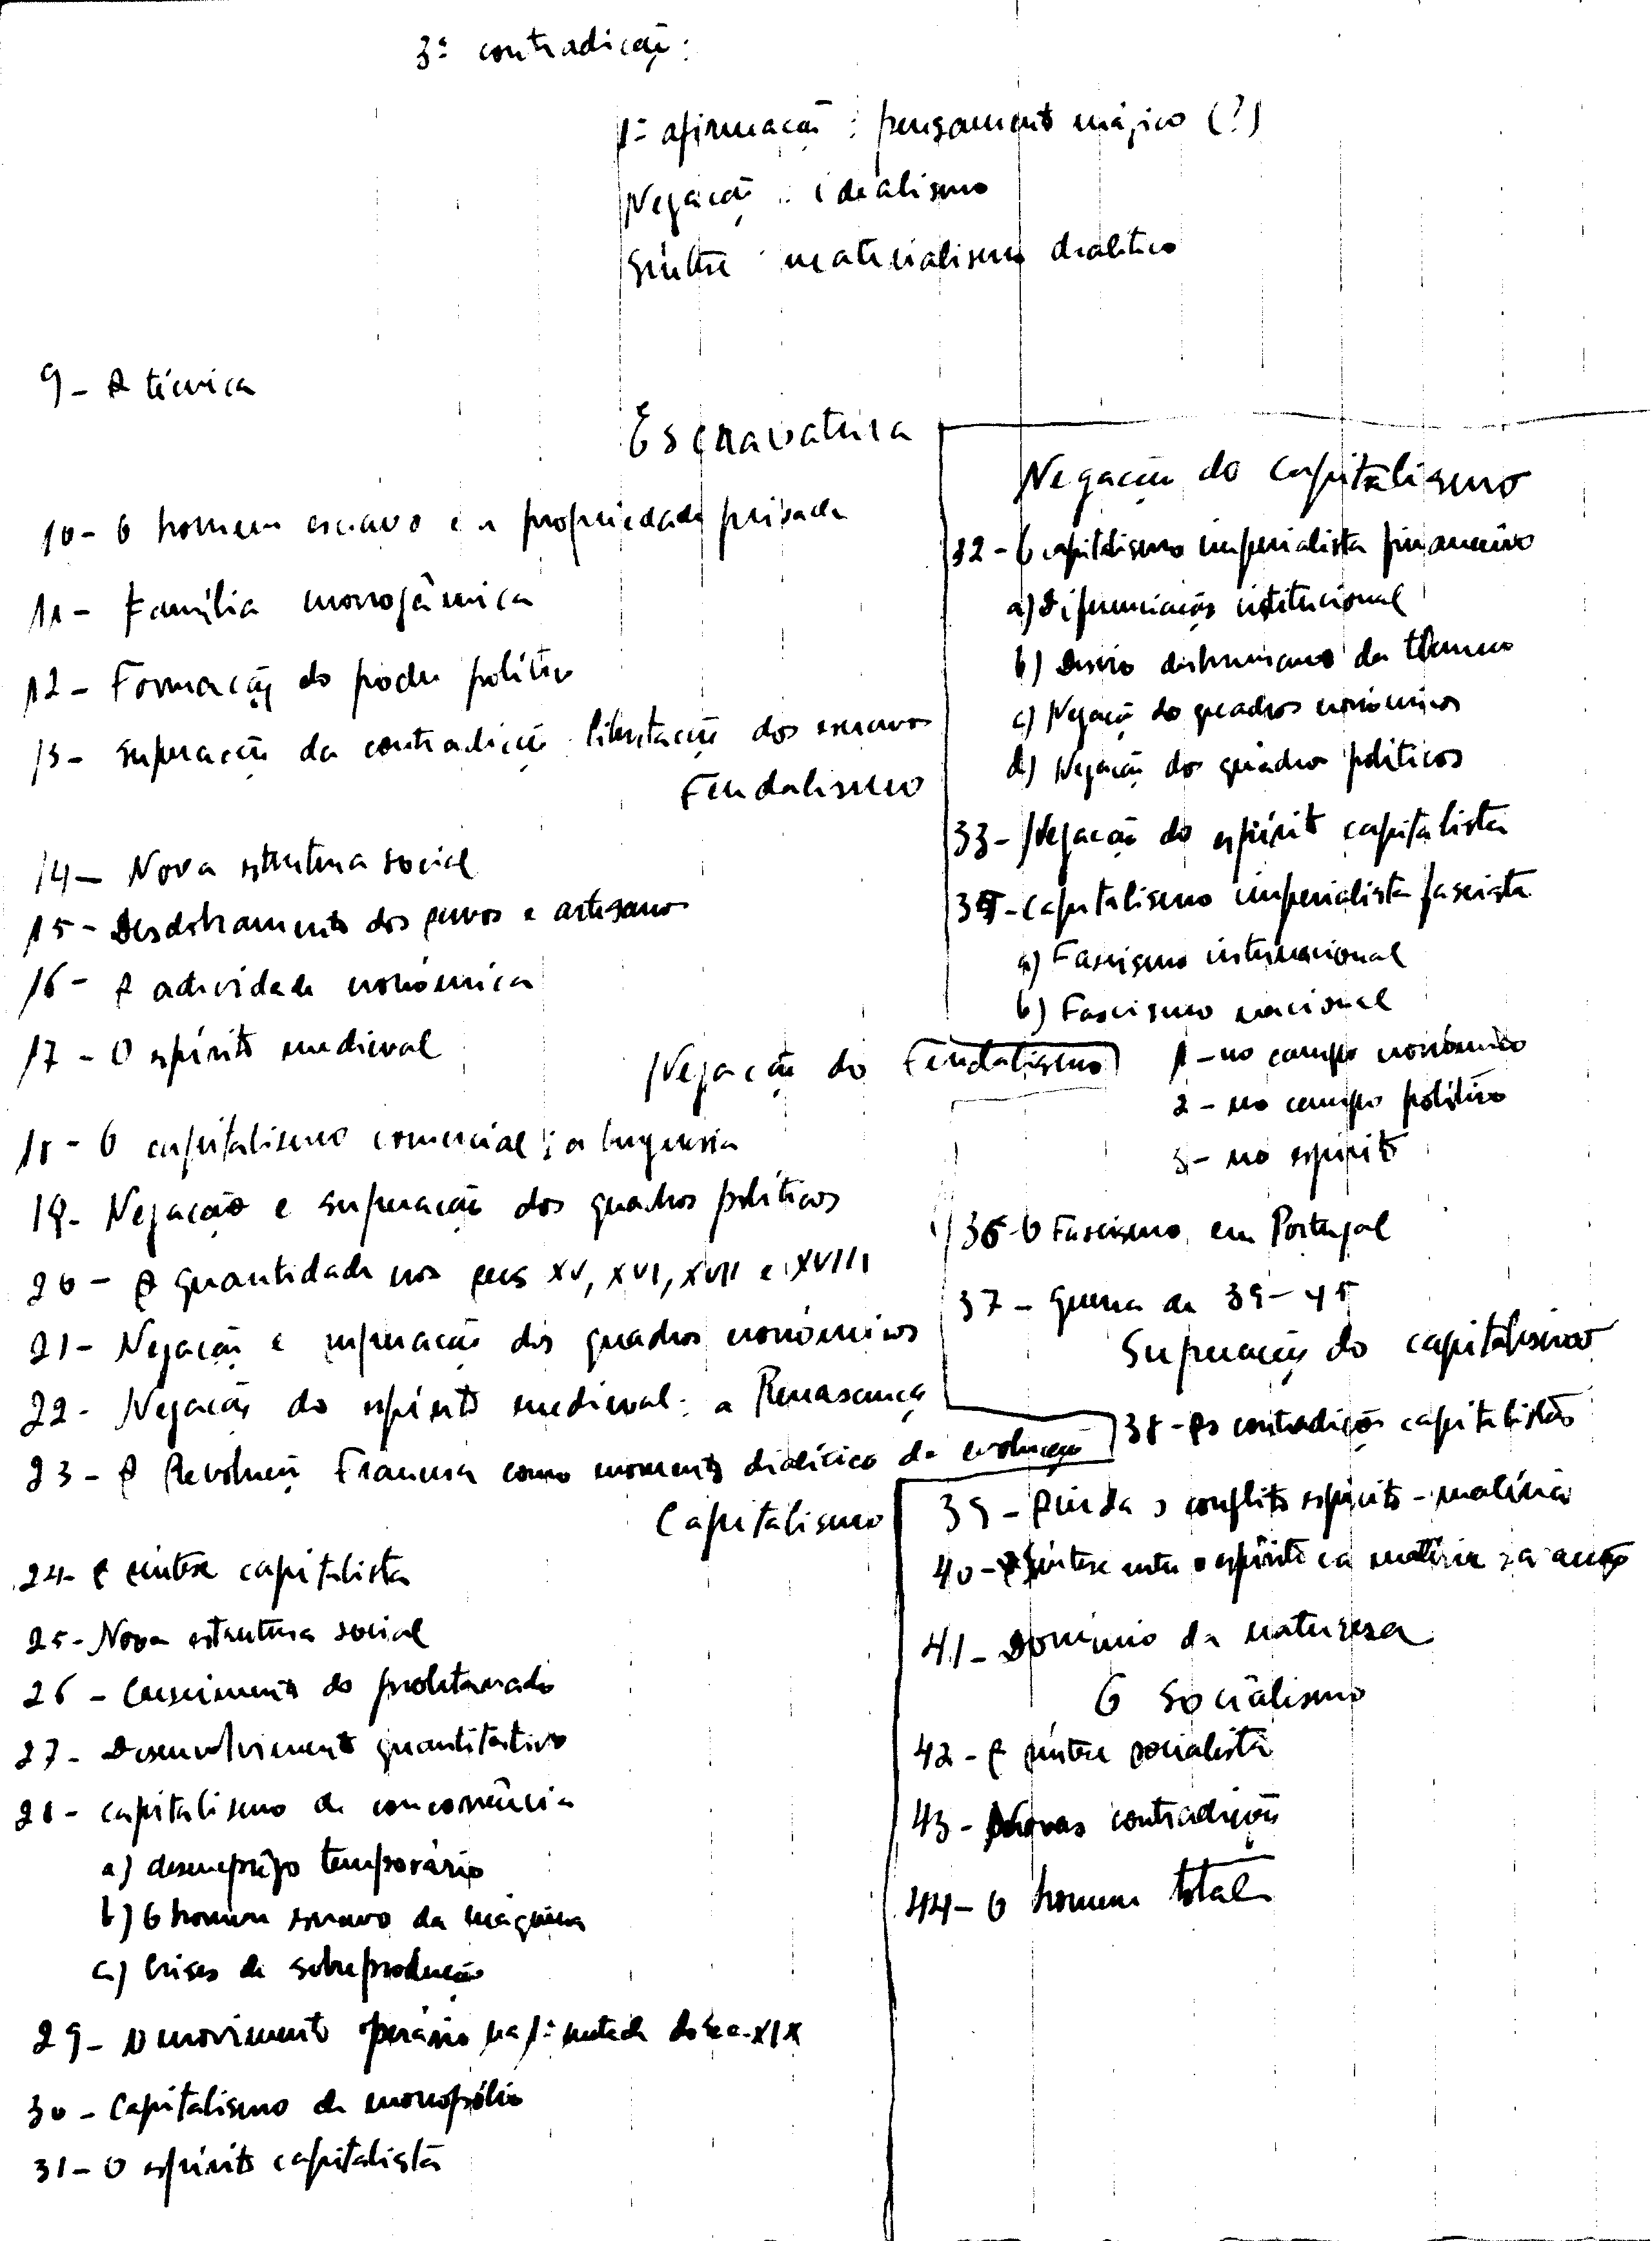 3ª contradição:
1ª afirmação: pensamento mágico (?)
Negação: idealismo
Síntese: materialismo dialético
9- A técnica
Escravatura
10- O homem escravo e a propriedade privada
11- Família monogâmica
12- Formação do poder político
13- Superação da contradição: libertação dos escravos
Feudalismo
14- Nova estrutura social
15- Desdobramento dos servos e artesanos
16- A actividade económica
17- O espírito medieval
Negação do Feudalismo
18- O capitalismo comercial; a burguesia
19- Negação e superação dos quadros políticos
20- A quantidade nos secs XV, XVI, XVII e XVIII
21- Negação e superação dos quadros económicos
22- Negação do espírito medieval: a Renascença
23- A Revolução Francesa como momento dialético da evolução
Capitalismo
24- A síntese capitalista
25- Nova estrutura social
26- Crescimento do proletariado
27- Desenvolvimento quantitativo
28- Capitalismo de concorrência
a) desemprêgo temporário
b) O homem escravo da máquina
c) Crises de sobreprodução
29- O movimento operário na 1ª metade do sec. XIX
30- Capitalismo de monopólio
31- O espírito capitalista
Negação do capitalismo
32- O capitalismo imperialista financeiro
a) Diferenciação institucional
b) Desvio deshumano da técnica
c) Negação do quadros económicos
d) Negação dos quadros políticos
33- Negação do espírito capitalista
35- Capitalismo imperialista fascista
a) Fascismo internacional
b) Fascismo nacional
1- no campo económico
2- no campo político
3- no espírito
36- O Fascismo em Portugal
37- Guerra de 39-45
Superação do capitalismo
38- As contradições capitalistas
39- Ainda o conflito espírito-matéria
40- A Síntese entre o espírito e a matéria: a acção
41- Domínio da natureza
O Socialismo
42- A síntese socialista
43- Novas contradições
44- O homem total